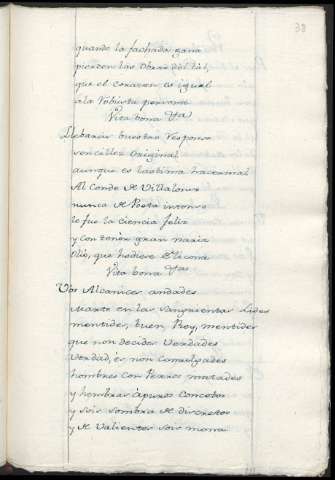 38
quando la fachada gana
pierden las obras del tal,
que el corazon es igual
a la robusta persona
Vita bona Vta
Llebarâ buestra responso
sencillez original
aunque es lastima hacer mal
Al Conde de Villalonso
nunca de Poeta intonso
le fue la ciencia feliz
y con tener gran nariz
Olio, que hediere Elicona
Vita bona Vta
Vos Alcanices andades
Marte en las sangrientas lides
mentides, buen Rey, mentides
que non decides verdades
verdad, es non comulgades
hombres con Perros matades
y hembras apuros Concetos
y sois sombra de discretos
y de valientes sois mona